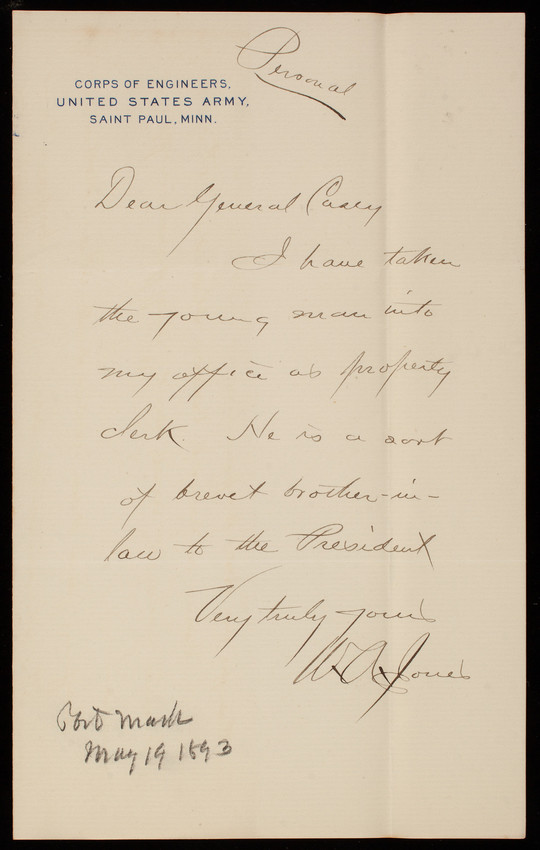 Personal
CORPS OF ENGINEERS,
UNITED STATES ARMY,
SAINT PAUL, MINN.
Dear General Casey
I have taken
the young man into
my office as property
clerk. He is a sort
of brevet brother-in-
law to the President
Very truly yours
W. A. Jones
Post Mark
May 19 1893